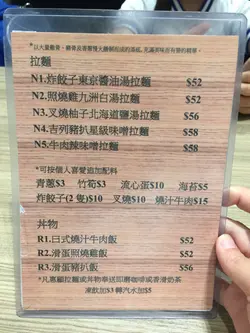 *以大量數量、豬骨炎香蔥慢火隨制而成的湯底,充滿原味而有營的精華。
拉麵
N1.炸餃子東京醬油湯拉麵 $52
N2.照燒雞九洲白湯拉麵 $52
N3.叉燒柚子北海道鹽湯拉麵 $56
N4.吉列豬扒星級味噌拉麵 $58
N5.牛肉辣味噌拉麵 $58
*可按個人喜愛追加配料
青蔥$3 竹筍$3 流心蛋$10 海苔$5
炸餃子(2隻)$10 叉燒$10 燒汁牛肉$15
丼物
R1.日式燒汁牛肉飯 $52
R2.滑蛋照燒雞飯 $52
R3.滑蛋豬扒飯 $56
*凡惠顧拉麵或丼物奉送即磨咖啡或香滑奶茶
凍飲加$3 轉汽水加$5